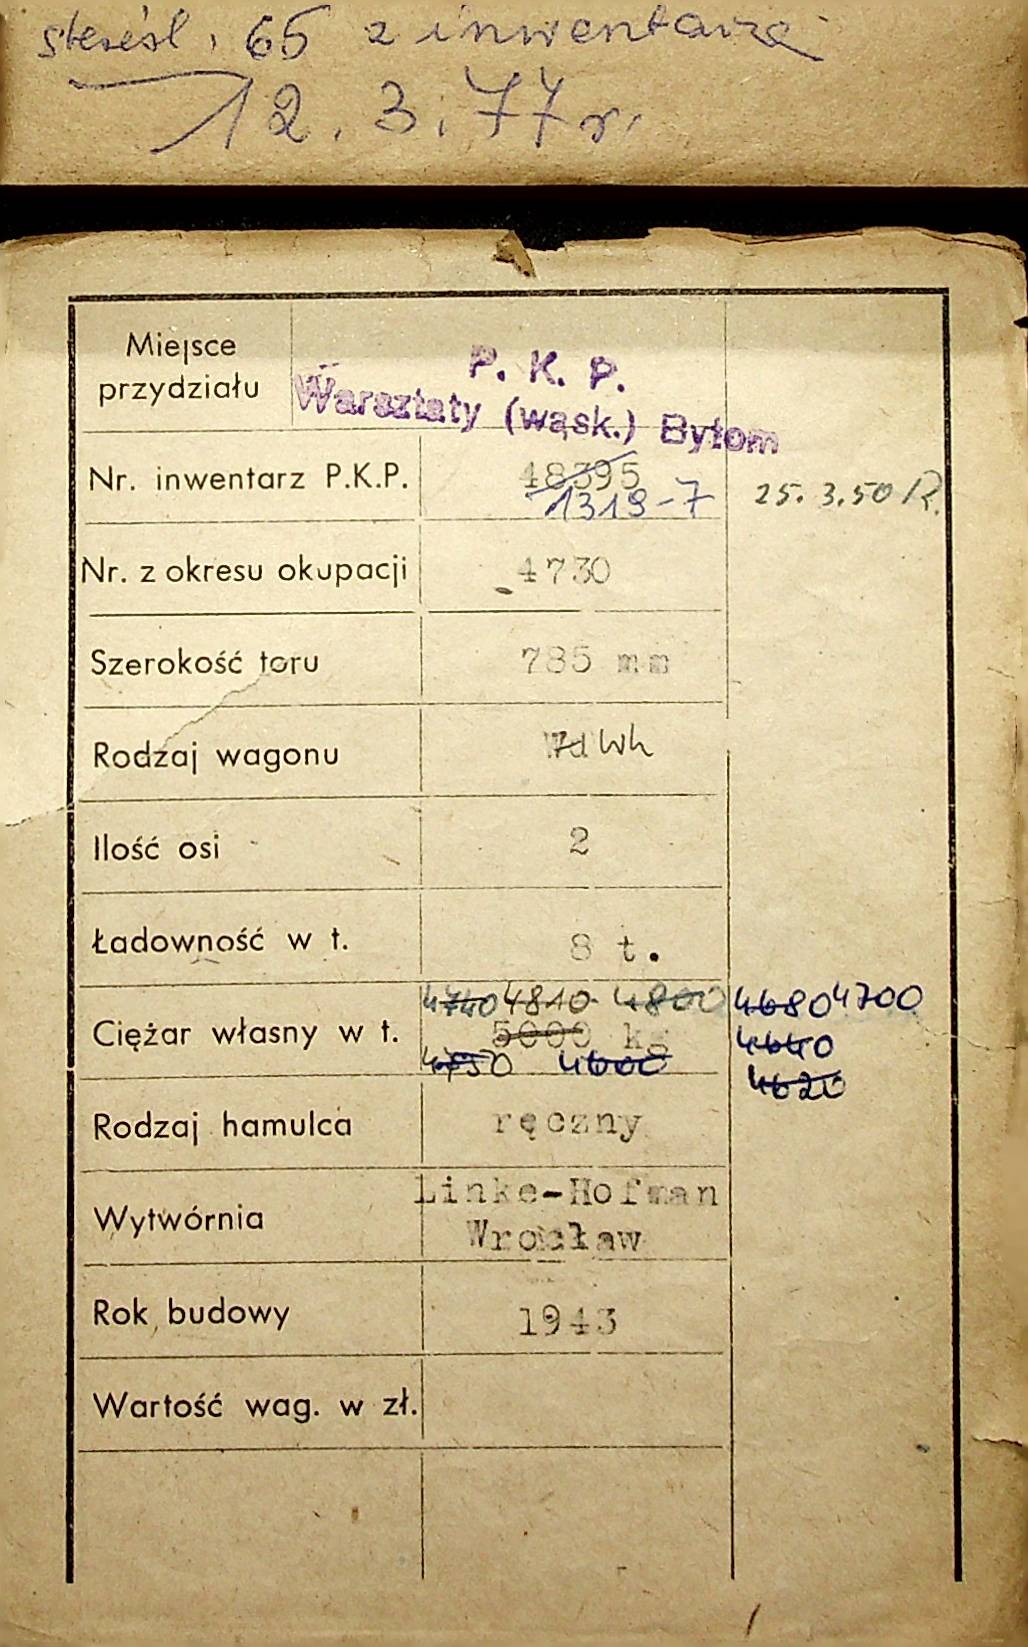 skreśl. 65 z inwentarza
12.3.77 r.
Miejsce przydziału
P. K. P.
Warsztaty (wąsk.) Bytom
Nr. inwentarz P.K.P. 48395
1319-7 25.3.50 R.
Nr. z okresu okupacji 4730
Szerokość toru 785 mm
Rodzaj wagonu Wh
Ilość osi 2
Ładowność w t. 8 t.
4740 4810 4800 4680 4700
Ciężar własny w t. 5000 kg 4640
4750 4600 4620
Rodzaj hamulca ręczny
Wytwórnia Linke-Hofman
Wrocław
Rok budowy 1943
Wartość wag. w zł.